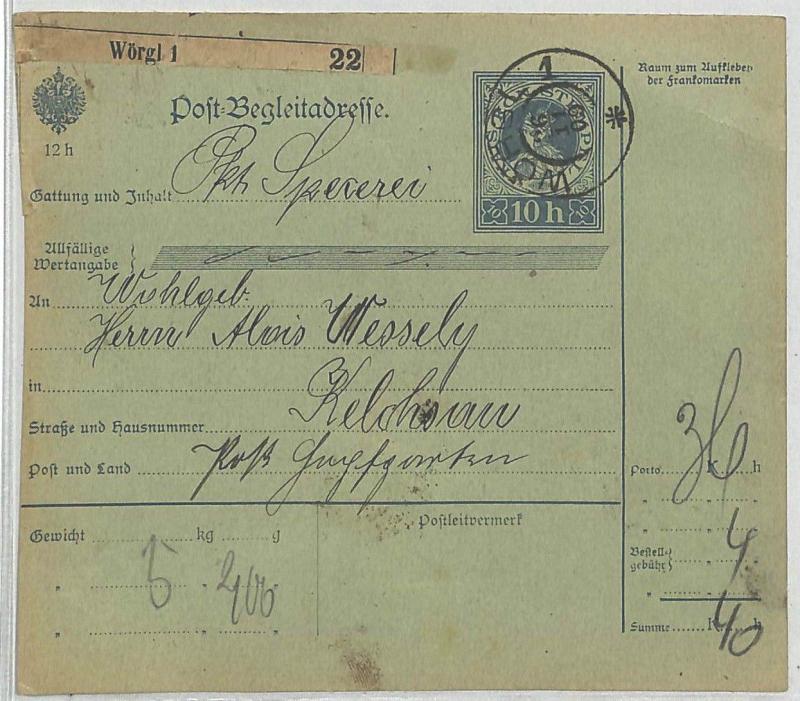 Wörgl 1 22
Post-Begleitadresse.
12 h
Gattung und Inhalt Pkt Spezerei
STEMPEL
10 h
WÖRGL
1
Raum zum Aufkleben
der Frankomarken
Allfällige
Wertangabe
An Wohlgeb.
Herrn Alois Wessely
in Kelchsau
Straße und Hausnummer
Post und Land Post Hopfgarten
Gewicht kg g
" 5 . 200
" . .
Postleitvermerk
Porto K 36 h
" " "
" " "
Bestell-
gebühr " 4 "
" " "
Summe K 40 h